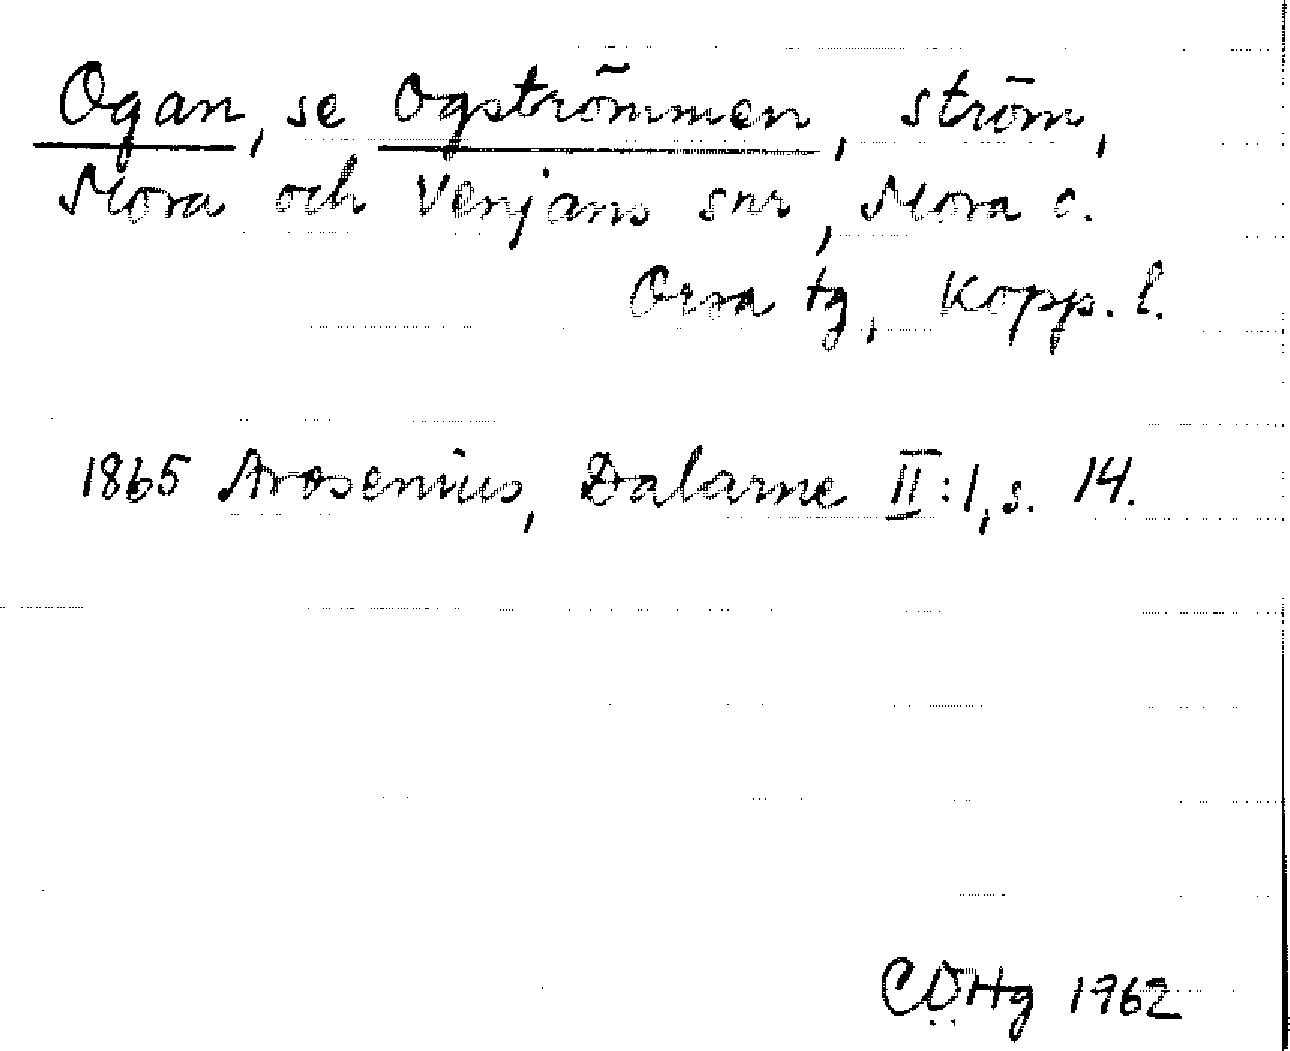 Ogan, se Ogströmmen, ström,
Mora och Venjans snr, Mora o.
Orsa tg, Kopp. l.
1865 Arosenius, Dalarne II:1, s. 14.
CDHg 1962